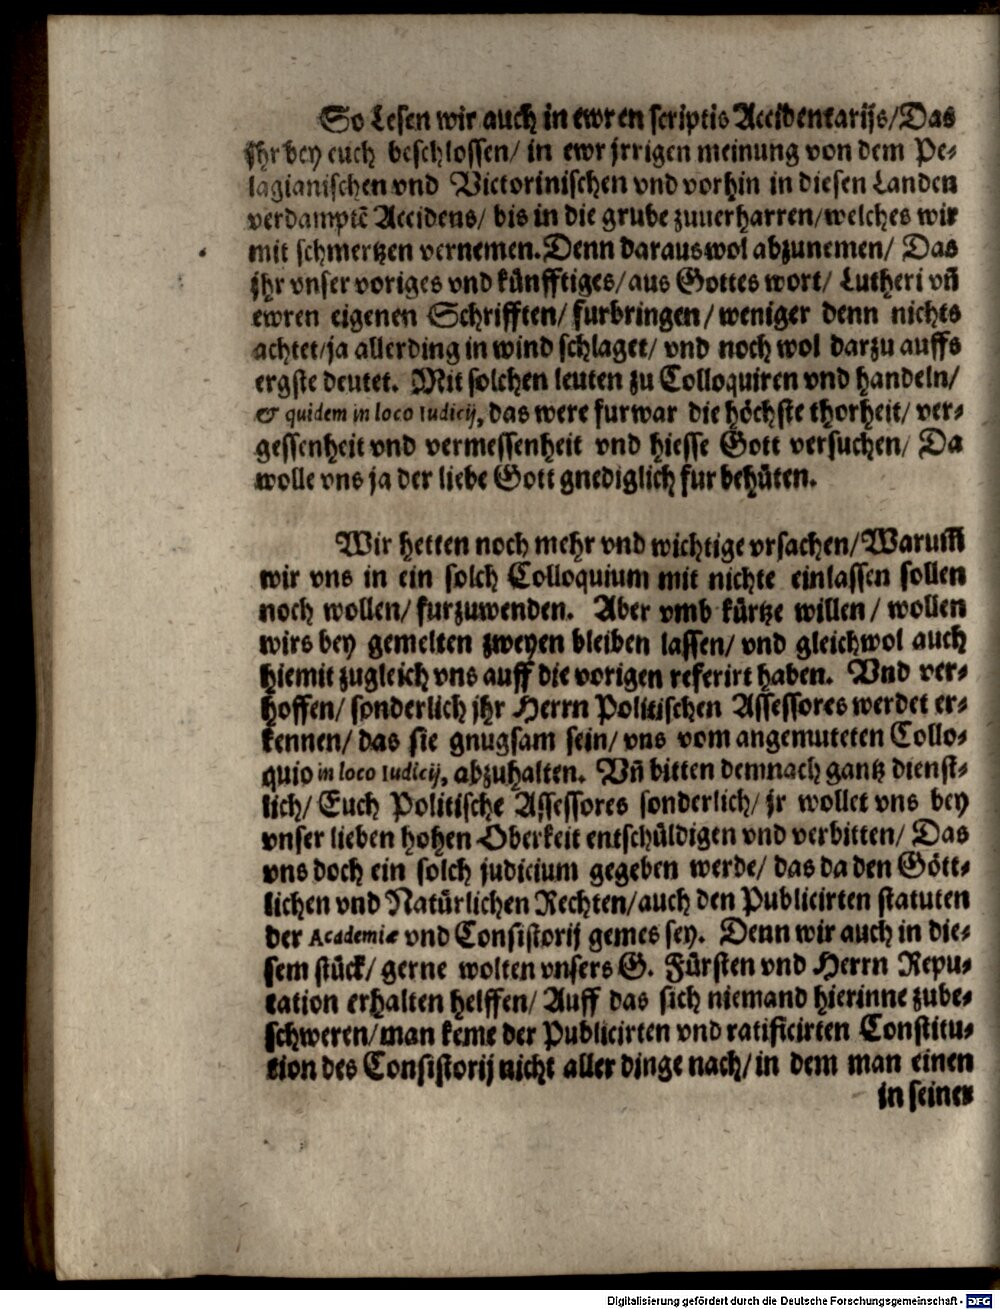 So Lesen wir auch in ewren scriptis Accidentarijs/Das
jhr bey euch beschlossen/ in ewr jrrigen meinung von dem Pe-
lagianischen vnd Victorinischen vnd vorhin in diesen Landen
verdamptē Accidens/ bis in die grube zuuerharren/welches wir
mit schmertzen vernemen. Denn daraus wol abzunemen/ Das
jhr vnser voriges vnd künfftiges/aus Gottes wort/ Lutheri vñ
ewren eigenen Schrifften/ furbringen/weniger denn nichts
achtet/ja allerding in wind schlaget/ vnd noch wol darzu auffs
ergste deutet. Mit solchen leuten zu Colloquiren vnd handeln/
& quidem in loco iudicij, das were furwar die höchste thorheit/ ver-
gessenheit vnd vermessenheit vnd hiesse Gott versuchen/ Da
wolle vns ja der liebe Gott gnediglich fur behüten.
Wir hetten noch mehr vnd wichtige vrsachen/Warumb
wir vns in ein solch Colloquium mit nichte einlassen sollen
noch wollen/ furzuwenden. Aber vmb kürtze willen/ wollen
wirs bey gemelten zweyen bleiben lassen/ vnd gleichwol auch
hiemit zugleich vns auff die vorigen referirt haben. Vnd ver-
hoffen/ sonderlich jhr Herrn Politischen Assessores werdet er-
kennen/ das sie gnugsam sein/ vns vom angemuteten Collo-
quio in loco iudicij, abzuhalten. Vñ bitten demnach gantz dienst-
lich/ Euch Politische Assessores sonderlich/ jr wollet vns bey
vnser lieben hohen Oberkeit entschüldigen vnd verbitten/ Das
vns doch ein solch judicium gegeben werde/ das da den Gött-
lichen vnd Natürlichen Rechten/auch den Publicirten statuten
der Academiæ vnd Consistorij gemes sey. Denn wir auch in die-
sem stück/ gerne wolten vnsers G. Fürsten vnd Herrn Repu-
tation erhalten helffen/ Auff das sich niemand hierinne zube-
schweren/man keme der Publicirten vnd ratificirten Constitu-
tion des Consistorij nicht aller dinge nach/in dem man einen
in seiner
Digitalisierung gefördert durch die Deutsche Forschungsgemeinschaft - DFG